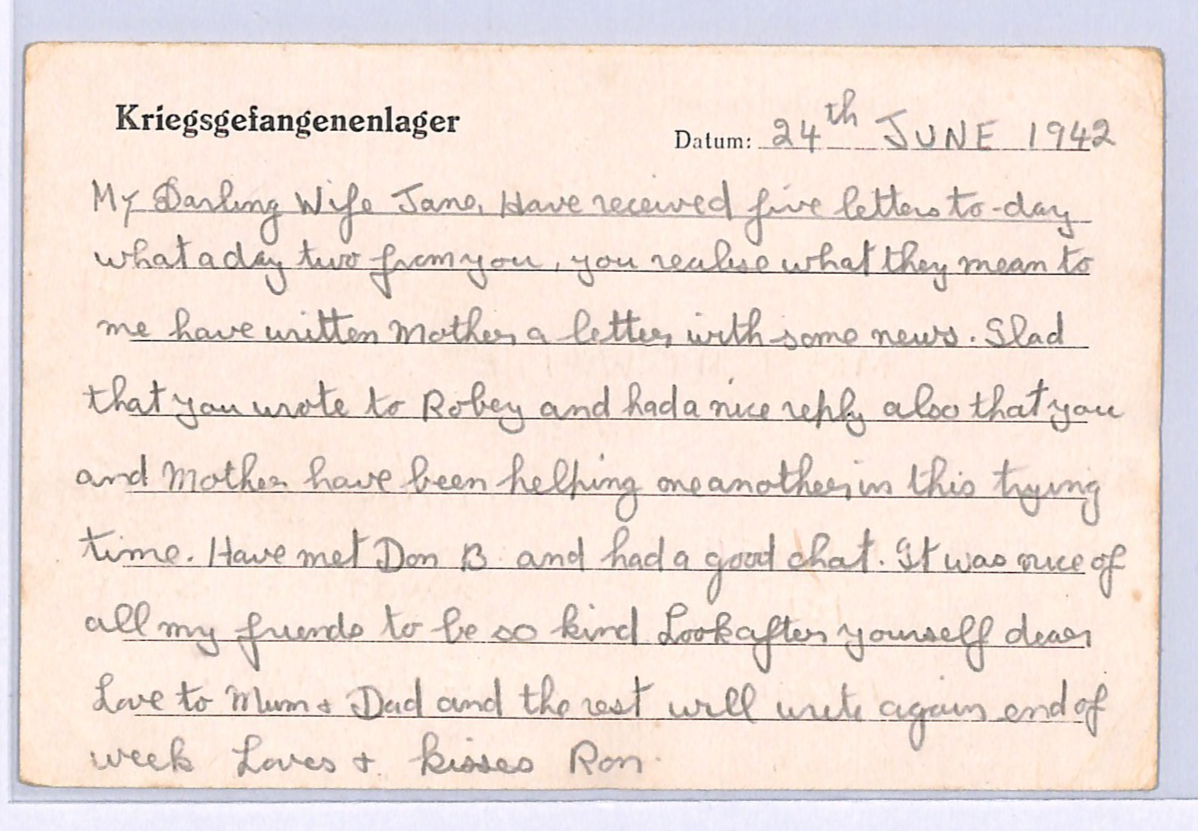 Kriegsgefangenenlager
Datum: 24th JUNE 1942
My Darling Wife Jane, Have received five letters to-day
what a day two from you, you realise what they mean to
me have written Mother a letter with some news. Glad
that you wrote to Robey and had a nice reply also that you
and Mother have been helping one another in this trying
time. Have met Don B and had a good chat. It was nice of
all my friends to be so kind Look after yourself dear
Love to Mum & Dad and the rest will write again end of
week Loves & kisses Ron.